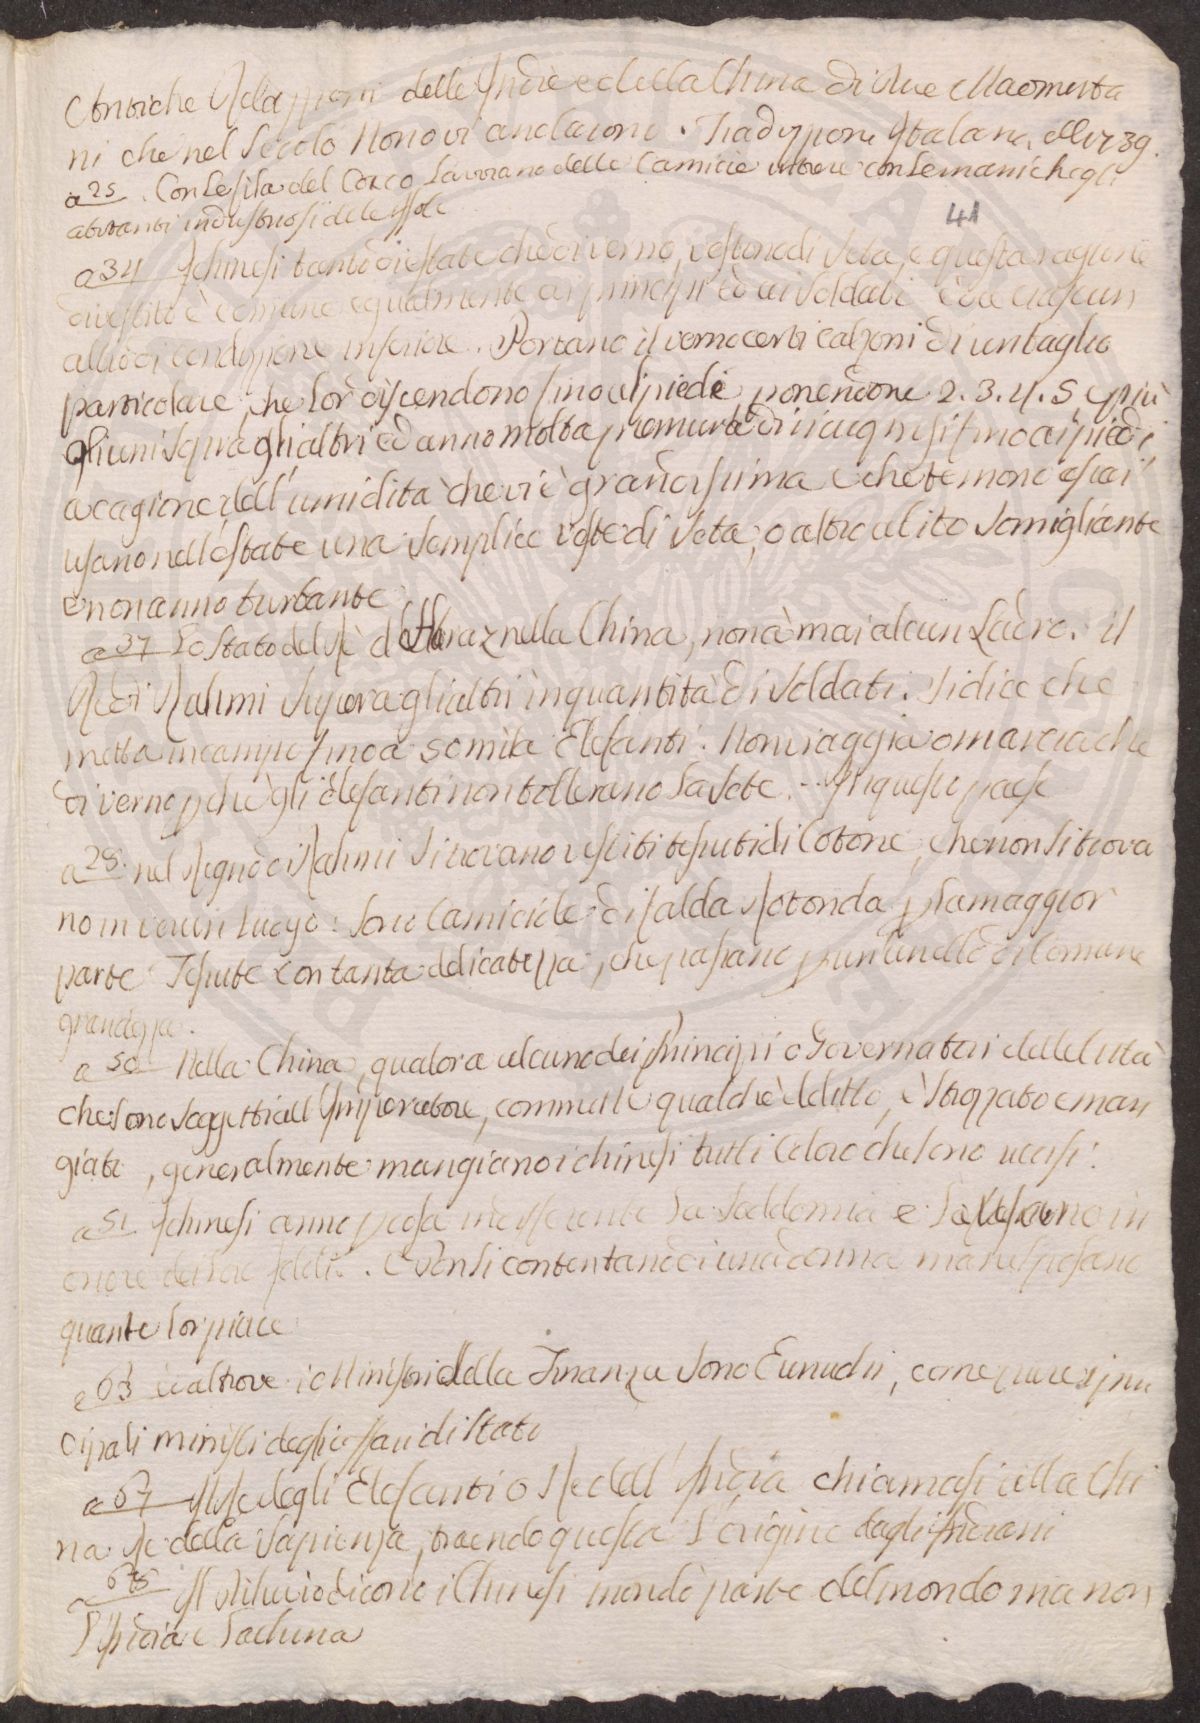 Antiche Relazzioni delle Indie e della China di due Maometta
ni che nel secolo nono vi andarono. Traduzzione Italiana.
a 25. Con le fila del Cocco lavorano delle Camicie intere con le maniche gli
abitanti industriosi delle Isole
41
a 34 I chinesi tanto di estate che di verno, vestono di seta, e questa ragione
di vestito è comune egualmente ai principi ed ai soldati
altro di condizione inferiore. Portano il verno certi calzoni di un taglio
particolare, che lor discendono sino a piedi, ponendone 2. 3. 4. 5 e più
gli uni sopra gli altri ed anno molta premura di sino ai piedi,
a cagione dell'umidità che vi è grandissima e che temono assai
usano nell'estate una semplice veste di seta, o altro abito somigliante
e non anno turbante.
a 37 Lo stato del Rè d'Haraz nella China, non à mai alcun ladro. il
Re di Rahmi supera gli altri in quantità di soldati. Si dice che
metta in campo sino a 50 mila Elefanti. Non viaggia o marcia che
di verno pche gli elefanti non tollerano la sete. In questo paese
a 28. nel Regno di Rahmi si trovano vestiti tessuti di Cotone, che non si trova
no in verun luogo: sono Camiciole di falda rotonda p la maggior
parte Tessute con tanta delicatezza, che passano p un anello di comune
grandezza.
a 50 Nella China, qualora alcuno dei Principi o Governatori delle Città
che sono soggetti all'Imperatore, commette qualche delitto, è strozzato e man
giato, generalmente mangiano i chinesi tutti coloro che sono uccisi.
a 51 I chinesi anno p cosa indifferente la soddomia e la usano in
onore dei loro Idoli. E non si contentano di una donna ma ne sposano
quante lor piace
a 63 e altrove i Ministri della Finanza sono Eunuchi, come pure i prin
cipali ministri degli affari di stato
a 67 Il Re degli Elefanti o Re dell'India chiamasi alla Chi
na Re della Sapienza, traendo questa l'origine dagli Indiani
68 Il diluvio dicono i Chinesi inondò parte del mondo ma non
l'India e la china